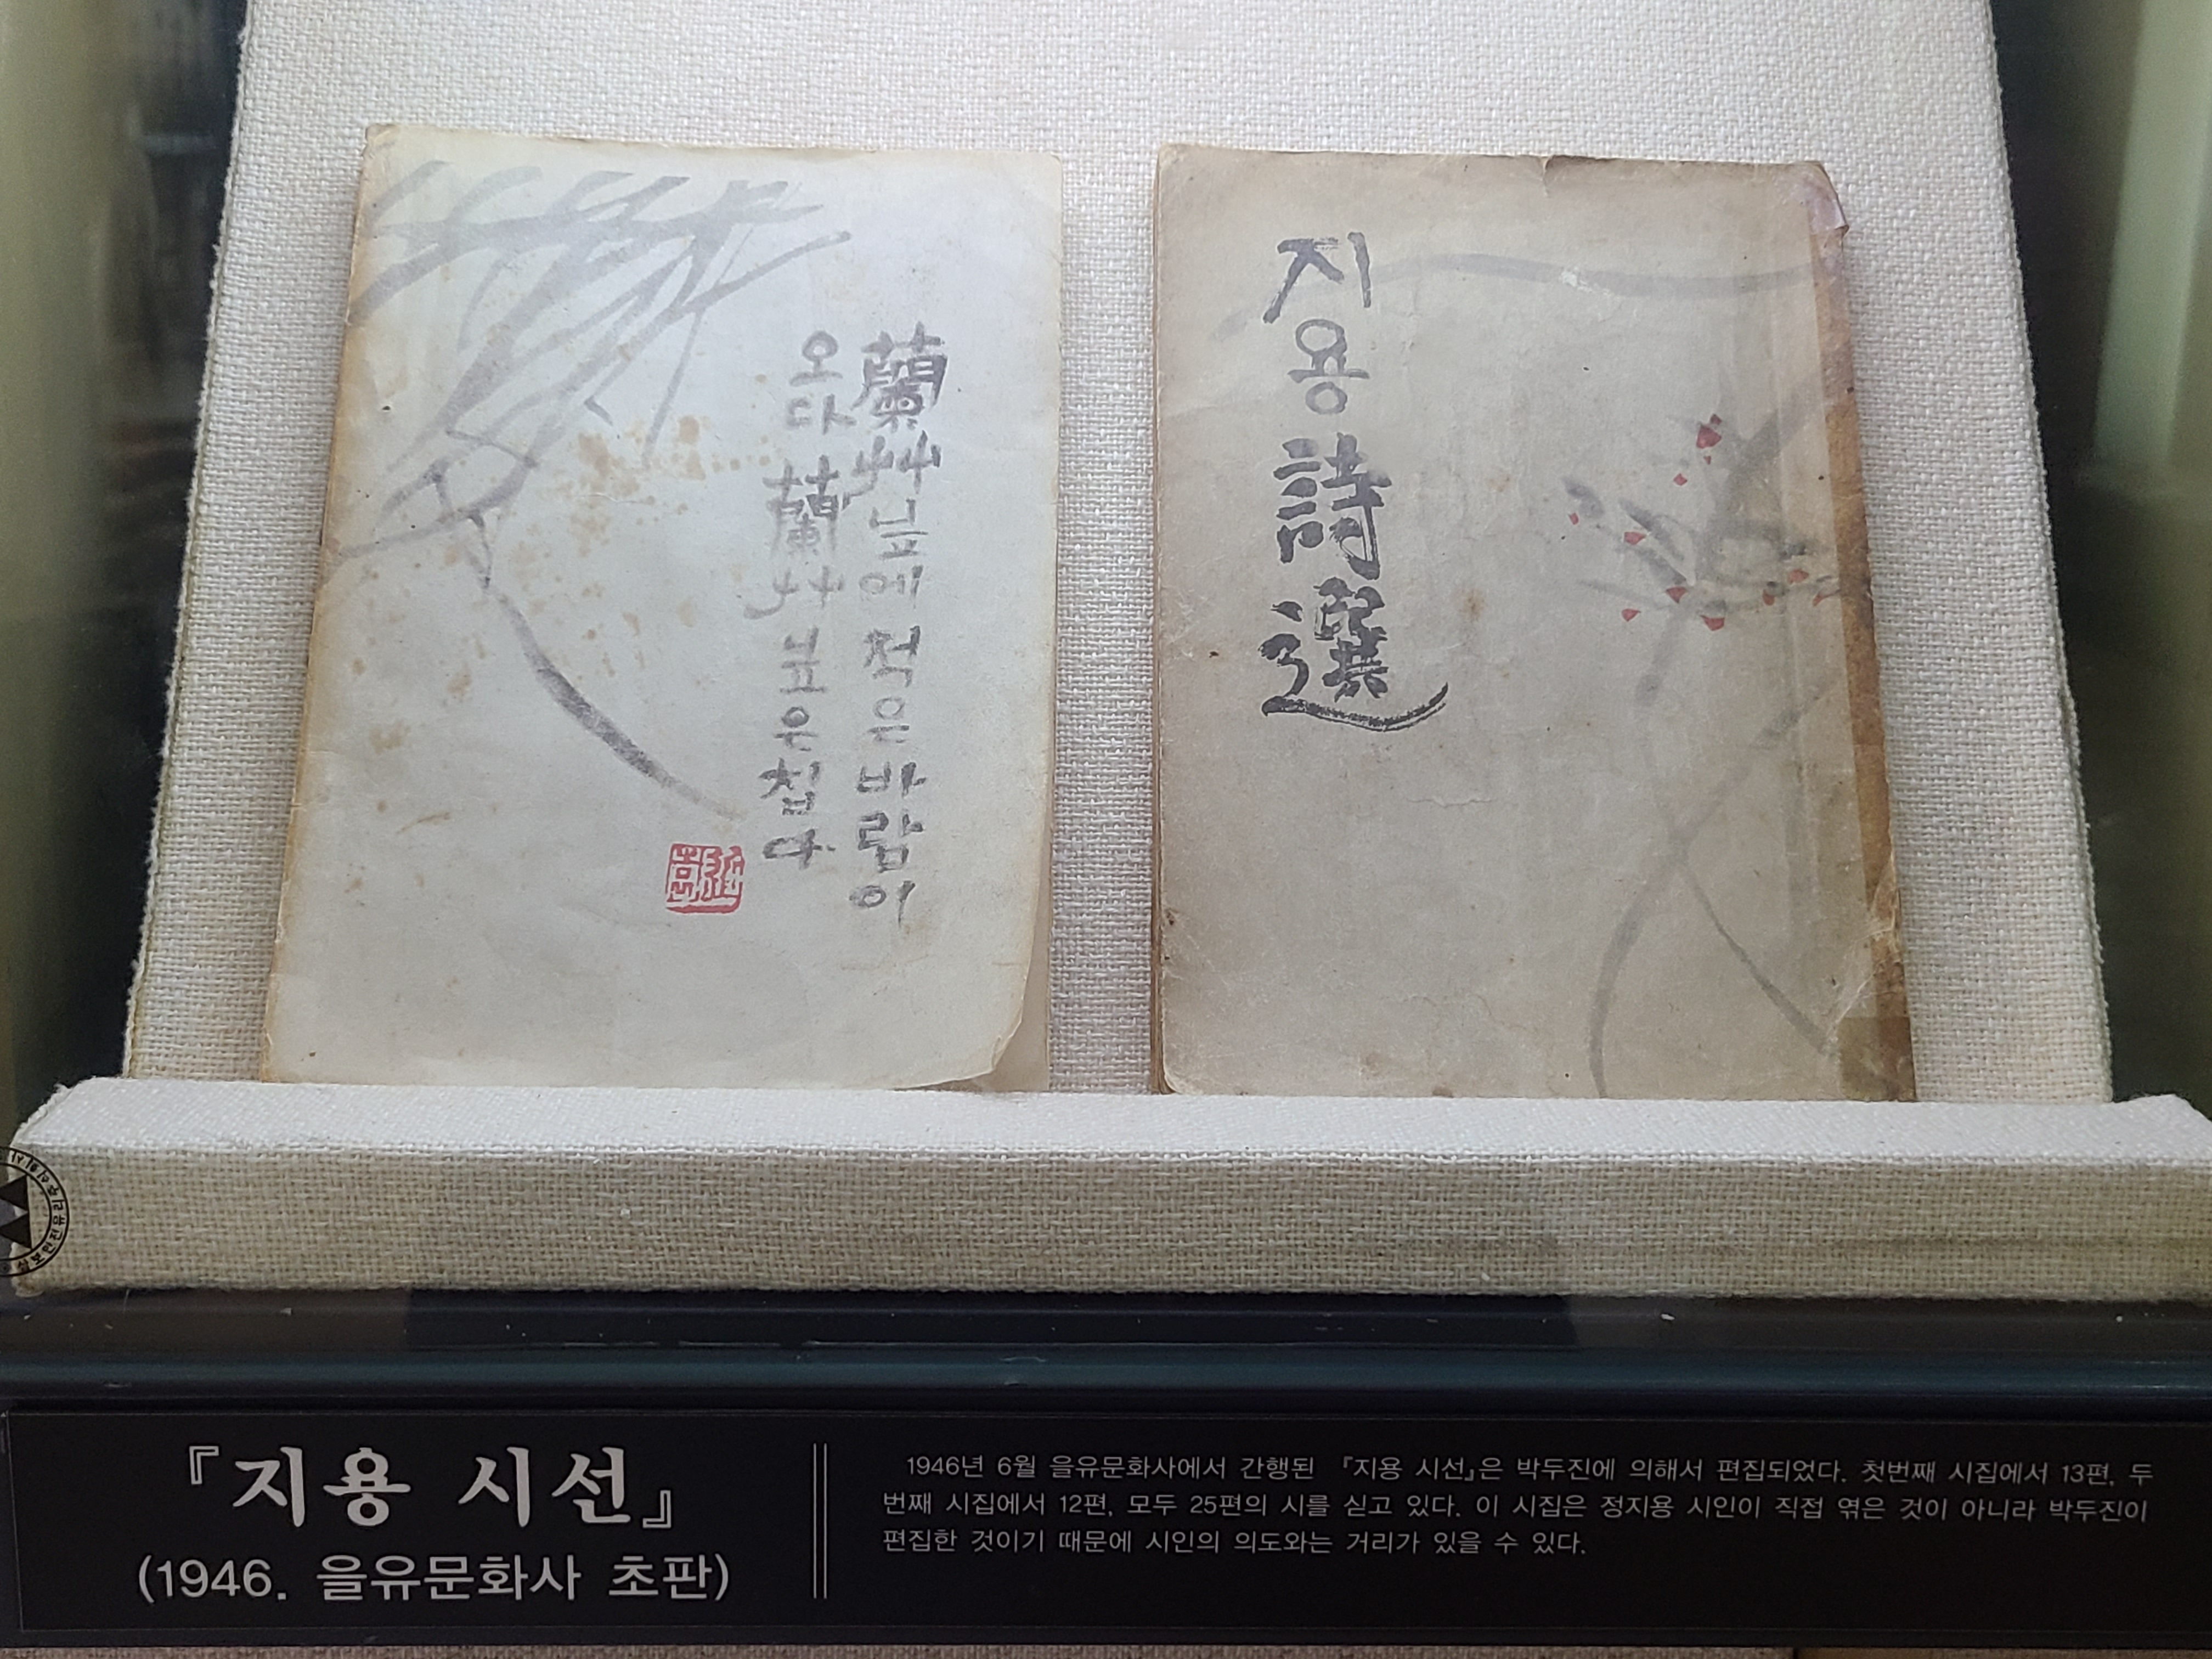 蘭艸닢에 적은바람이
오다 蘭艸닢은칩다
지용詩選
『지용 시선』
(1946. 을유문화사 초판)
1946년 6월 을유문화사에서 간행된 『지용 시선』은 박두진에 의해서 편집되었다. 첫번째 시집에서 13편, 두
번째 시집에서 12편, 모두 25편의 시를 싣고 있다. 이 시집은 정지용 시인이 직접 엮은 것이 아니라 박두진이
편집한 것이기 때문에 시인의 의도와는 거리가 있을 수 있다.